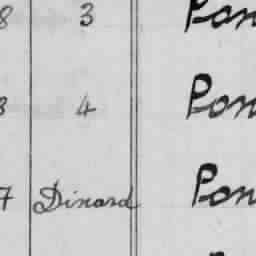 8 3 Pon
3 4 Pon
7 Dinard Pon